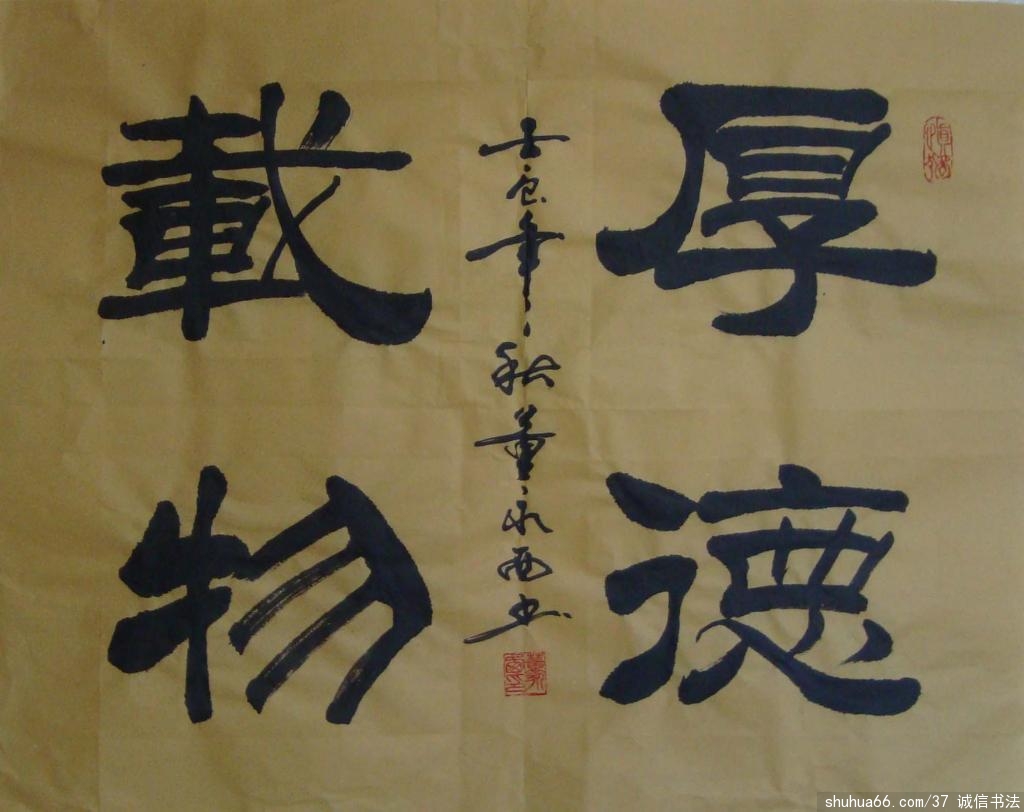 厚德
載物
壬辰年秋董永西书
shuhua66.com/37 诚信书法